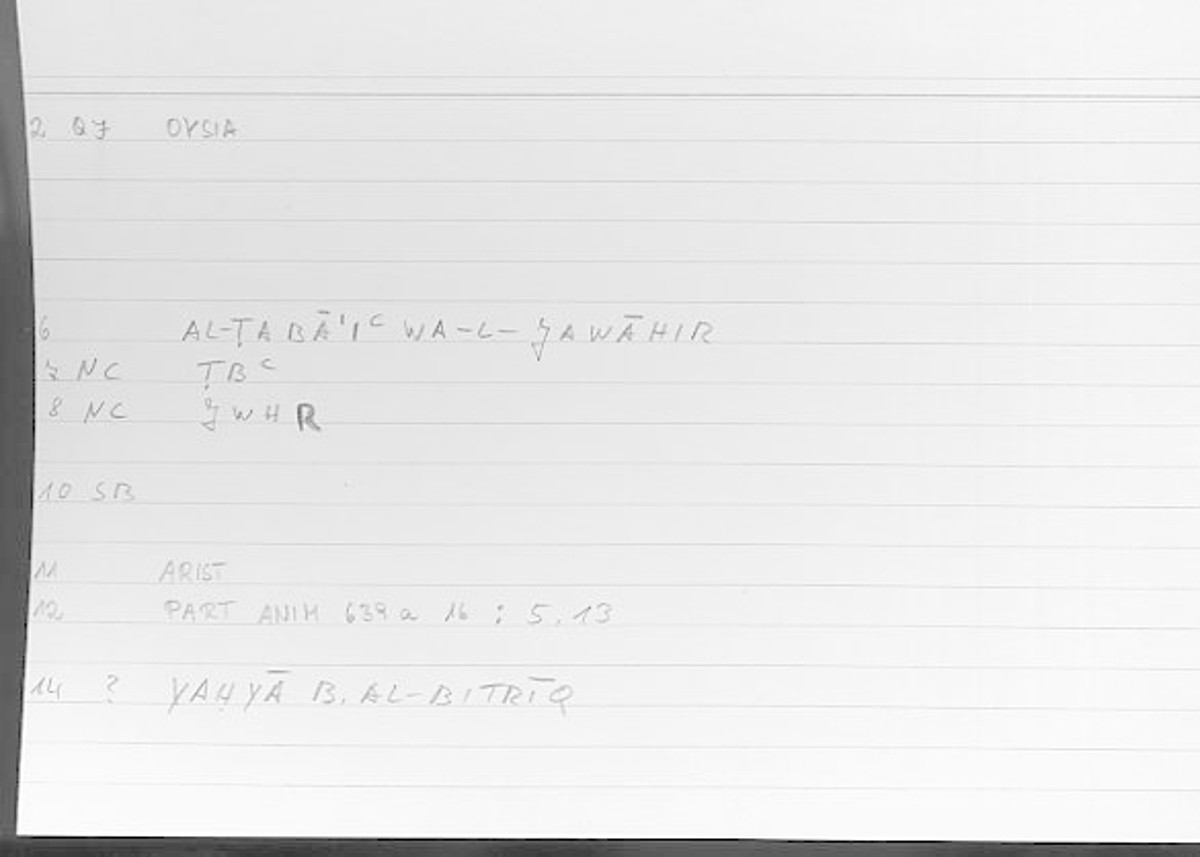 2 QJ OYSIA
6 AL-ṬABĀ'Iᶜ WA-L-ǦAWĀHIR
7 NC ṬBᶜ
8 NC ǦWHR
10 SB
11 ARIST
12 PART ANIM 639a 16 : 5.13
14 ? YAḤYĀ B. AL-BITRĪQ